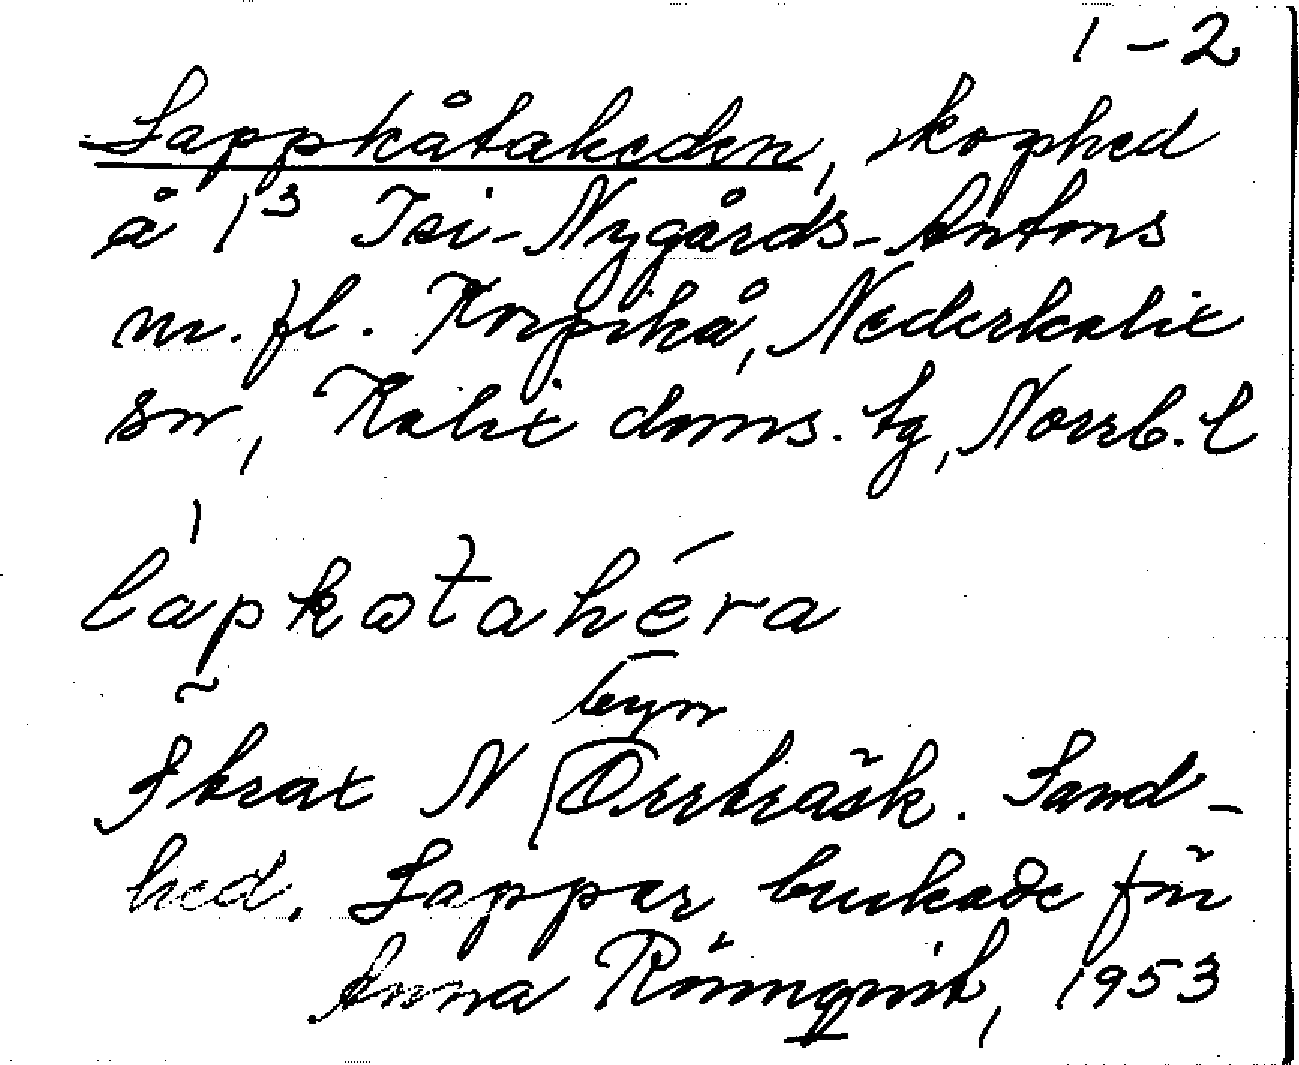 1-2
Lappkåtaheden, skoghed
å 1³ Isi-Nygårds-Antons
m. fl. Korpikå, Nederkalix
sn, Kalix doms. tg, Norrb. l
lapkåtahéra
byn
strax N Orrträsk. Sand-
hed. Lappar brukade för
Anna Rönnqvist, 1953